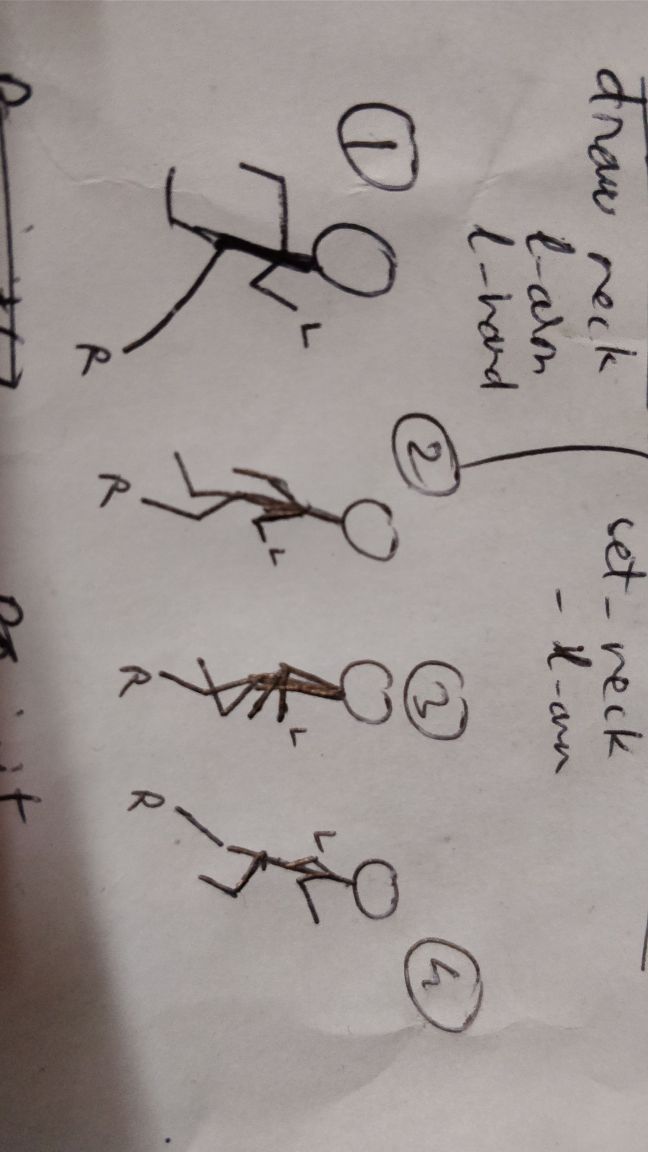 draw neck
l-arm
l-hand
set - neck
- l-arm
1
2
3
4
L
L
L
L
R
R
R
R